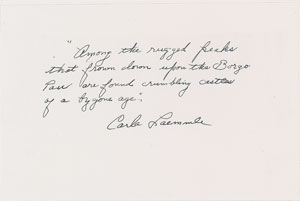 "Among the rugged peaks
that frown down upon the Borgo
Pass are found crumbling castles
of a bygone age".
Carla Laemmle